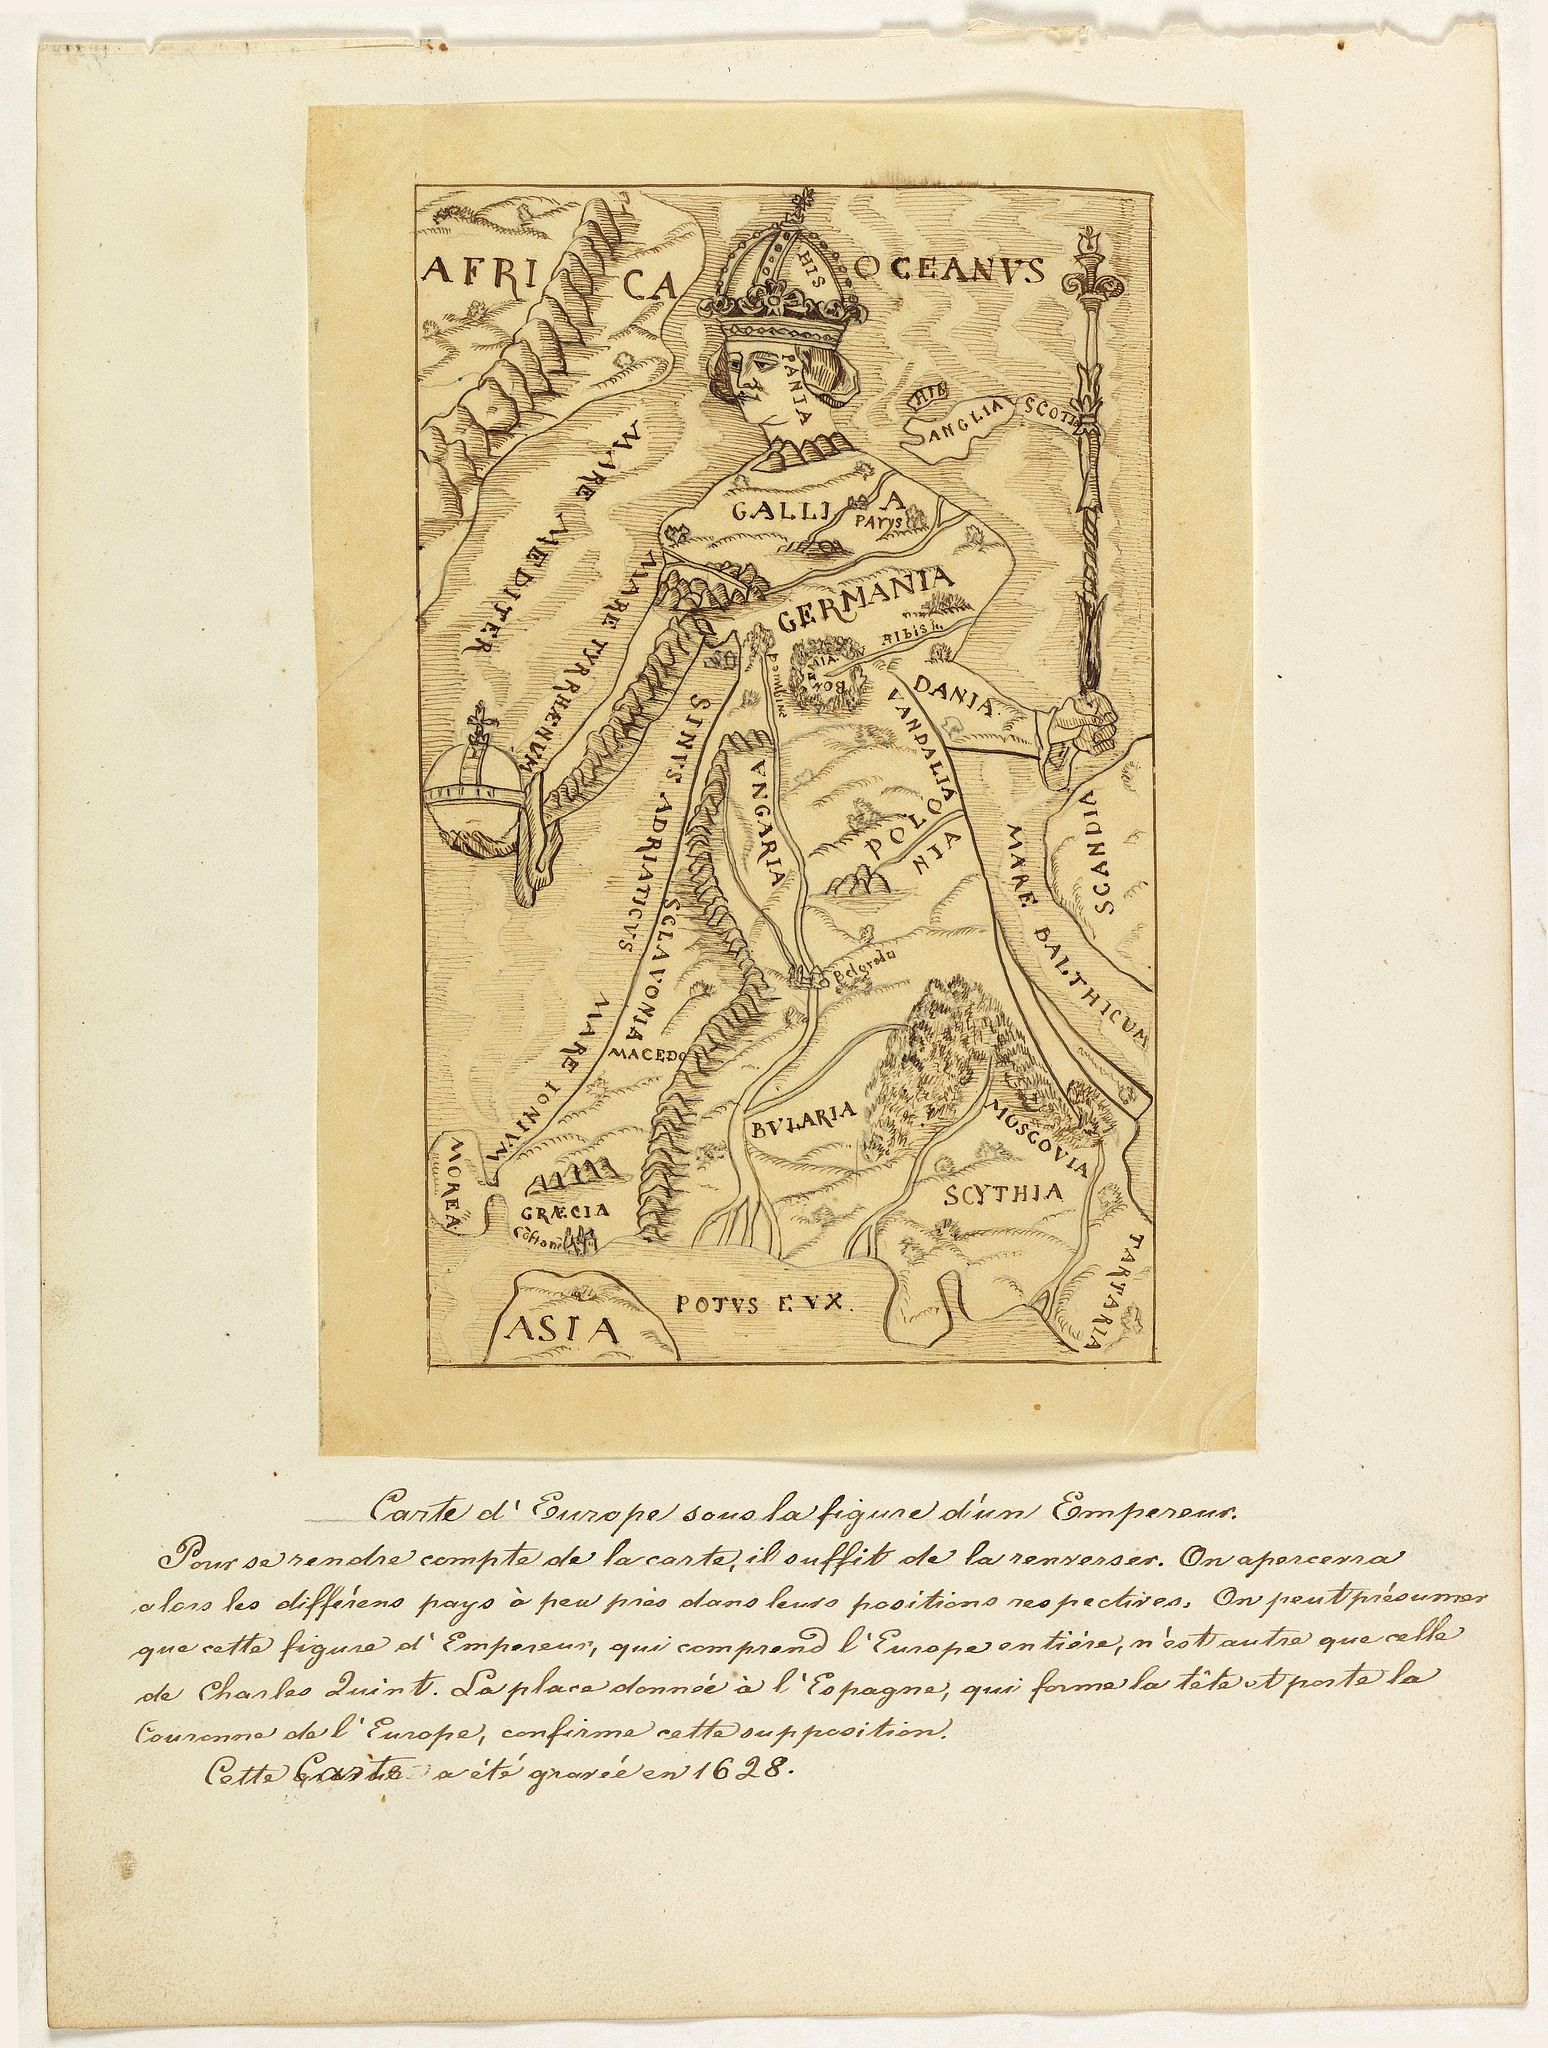 AFRICA
HIS
PANIA
OCEANVS
HIB
ANGLIA
SCOTI
MARE MEDITER
MARE TYRRHENUM
GALLIA
PARYS
GERMANIA
Albis
BOEMIA
Danubius
DANIA
VANDALIA
SINVS ADRIATICVS
VNGARIA
POLONIA
SCANDIA
MARE BALTHICUM
SCLAVONIA
Belgradu
MARE IONIVM
MACEDO
BVLARIA
MOSCOVIA
MOREA
SCYTHIA
GRÆCIA
TARTARIA
ASIA
POTVS EVX.
Carte d'Europe sous la figure d'un Empereur.
Pour se rendre compte de la carte, il suffit de la renverser. On apercevra
alors les différens pays à peu près dans leurs positions respectives. On peut présumer
que cette figure d'Empereur, qui comprend l'Europe entière, n'est autre que celle
de Charles Quint. La place donnée à l'Espagne, qui forme la tête et porte la
Couronne de l'Europe, confirme cette supposition.
Cette Carte a été gravée en 1628.